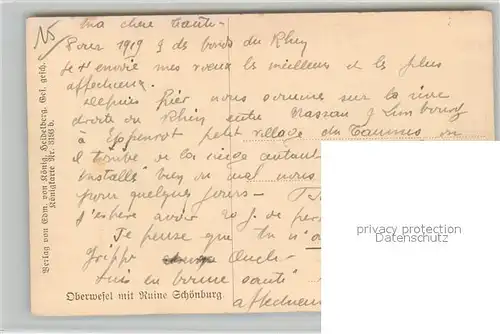 Ma chère tante -
Pour 1919 & des bords du Rhin
je t'envoie mes voeux les meilleurs et les plus
affectueux.
Depuis hier nous sommes sur la rive
droite du Rhin entre Nassau & Limbourg
à Eppenrot petit village du Taunus ou
il tombe de la neige autant
installés bien ou mal nous
pour quelques jours -
J'espère avoir 20 j. de per
Je pense que tu n'a
grippe
suis en bonne santé
affectueu
Verlag von Edm. von König, Heidelberg. Ges. gesch.
Königkarte Nr. 8193 b.
Oberwesel mit Ruine Schönburg
privacy protection
Datenschutz